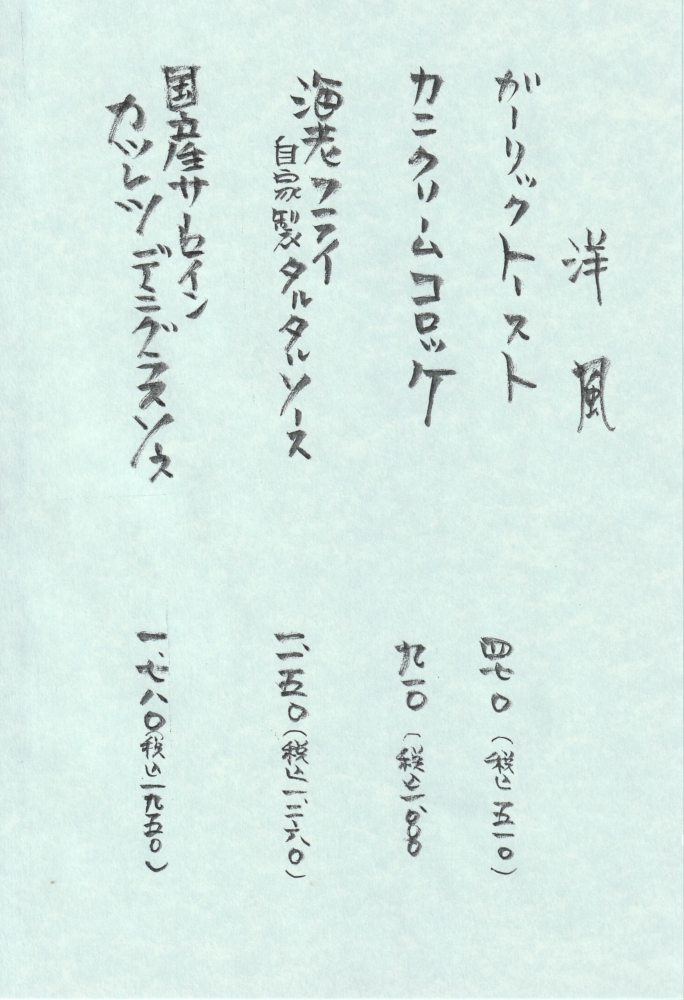 洋風
ガーリックトースト
四七〇(税込五一〇)
カニクリームコロッケ
九一〇(税込一、〇〇〇
海老フライ
自家製タルタルソース
一、一五〇(税込一、二六〇)
国産サーロイン
カツレツ デミグラスソース
一、七八〇(税込一九五〇)